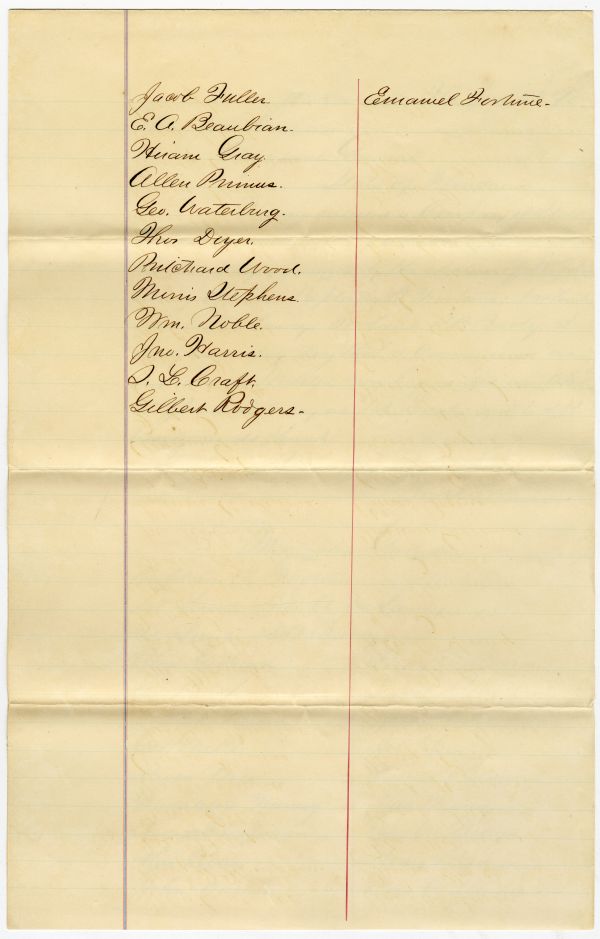 Jacob Fuller
E. A. Beaubian.
Hiram Gray
Allen Primus.
Geo. Waterburg.
Thos Dwyer.
Pritchard Wood.
Morris Stephens.
Wm. Noble.
Jno. Harris.
S. L. Craft.
Gilbert Rodgers-
Emanuel Fortune-